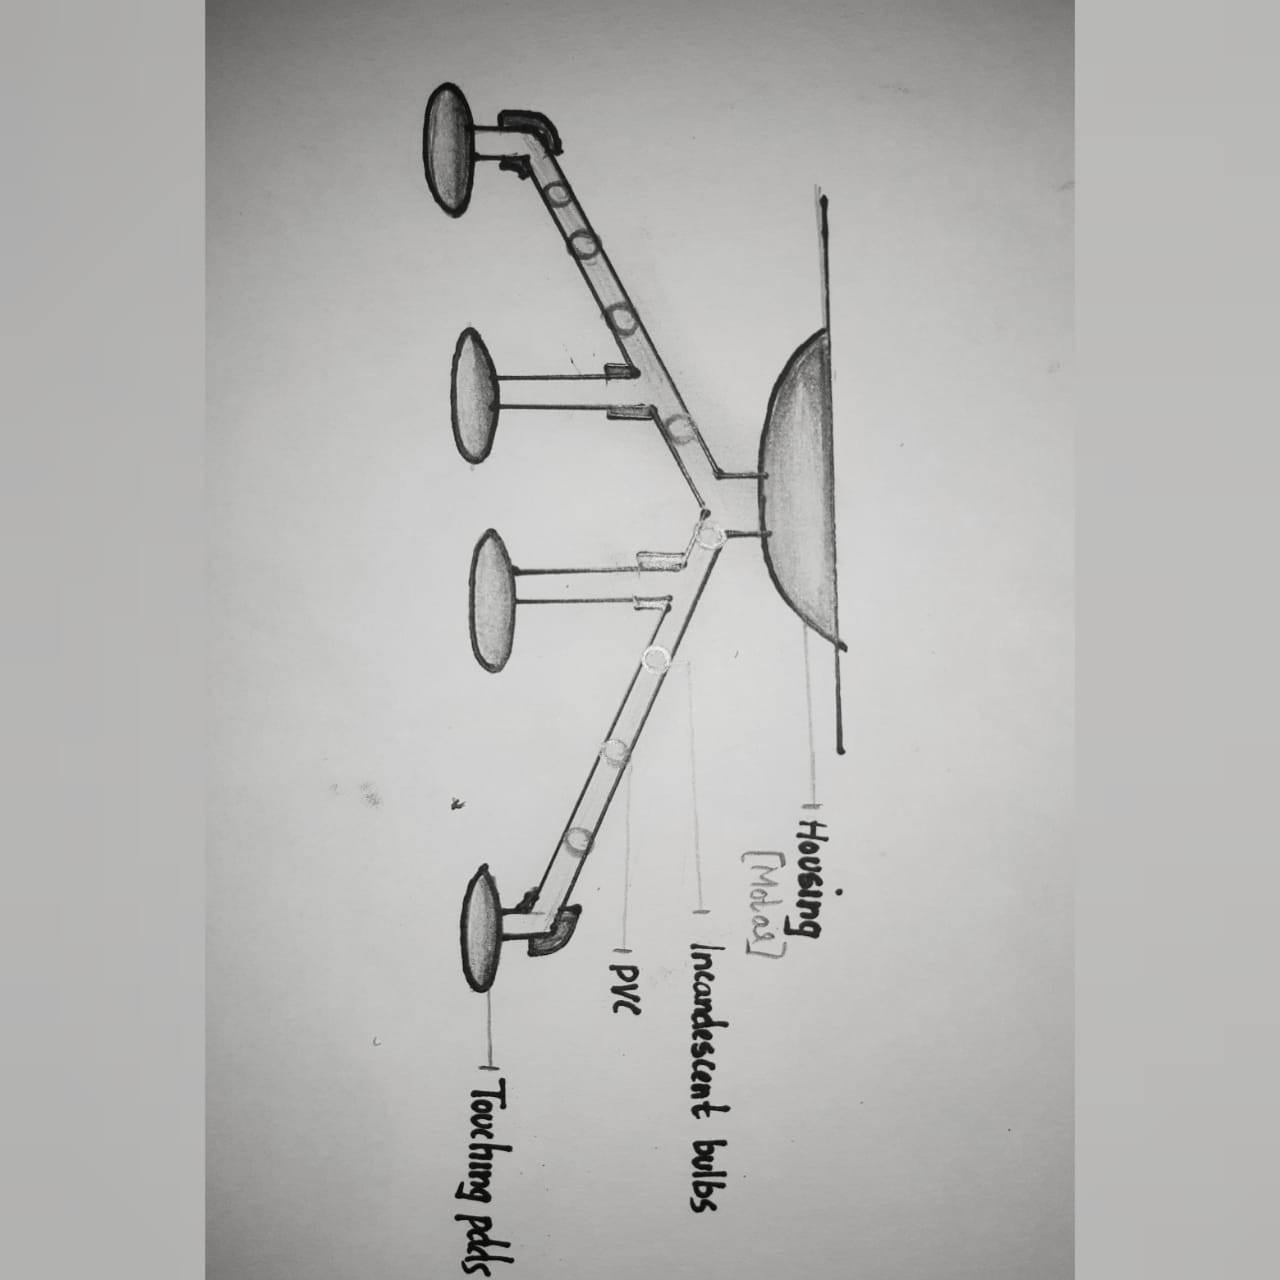 Housing
[Motar]
Incandescent bulbs
PVC
Touching pads